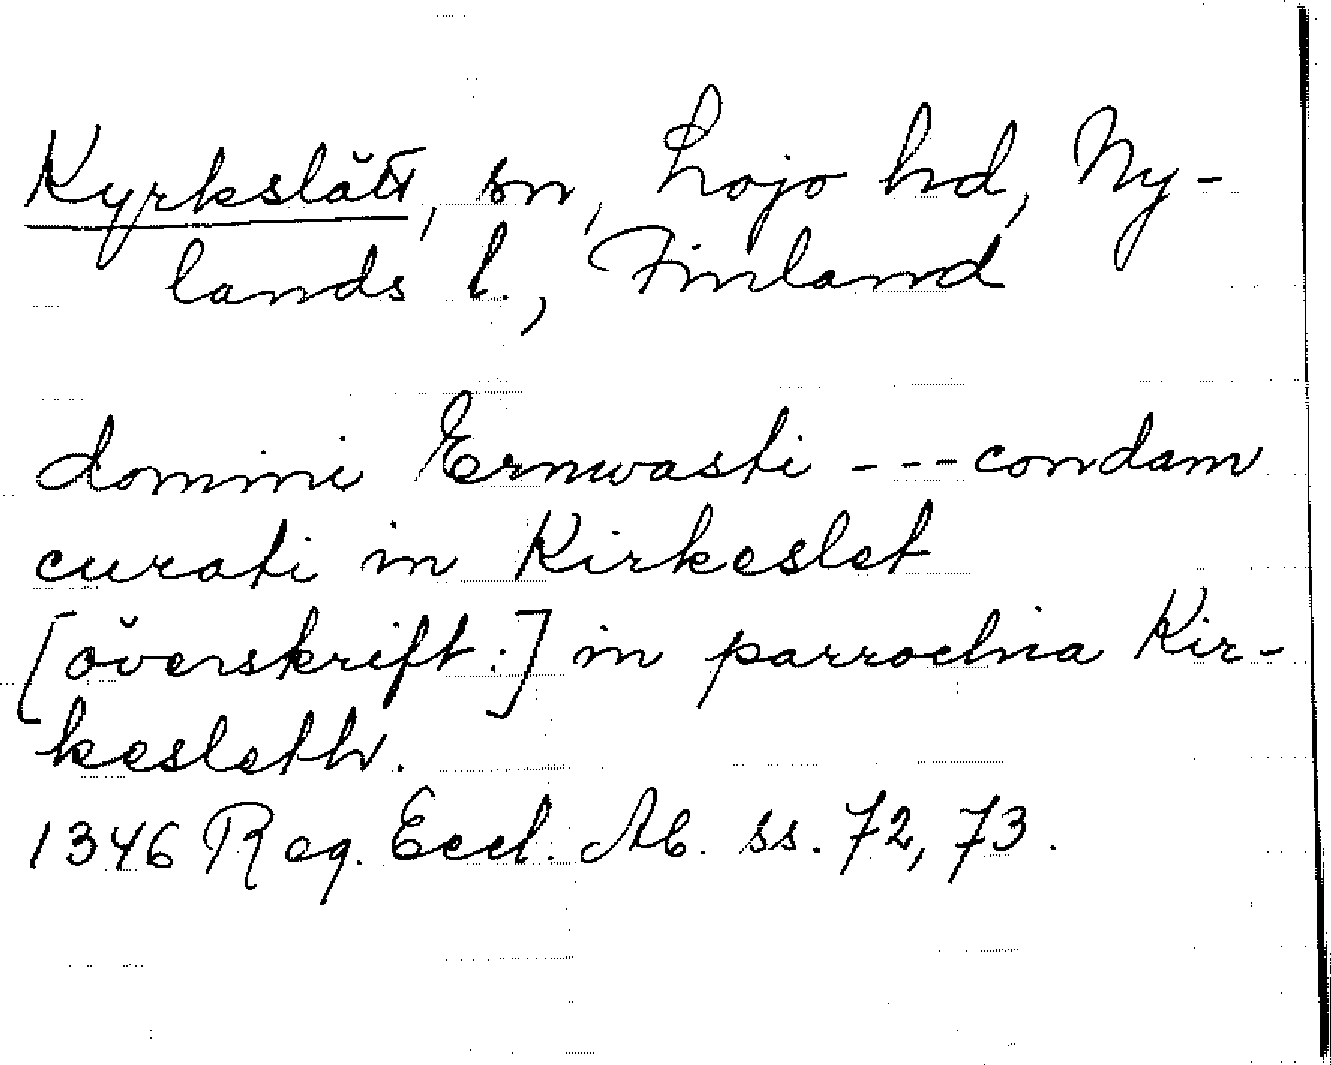 Kyrkslätt, sn, Lojo hd, Ny-
lands l., Finland
domini Ernwasti --- condam
curati in Kirkeslet
[överskrift:] in parrochia Kir-
kesleth.
1346 Reg. Eccl. Ab. ss. 72, 73.